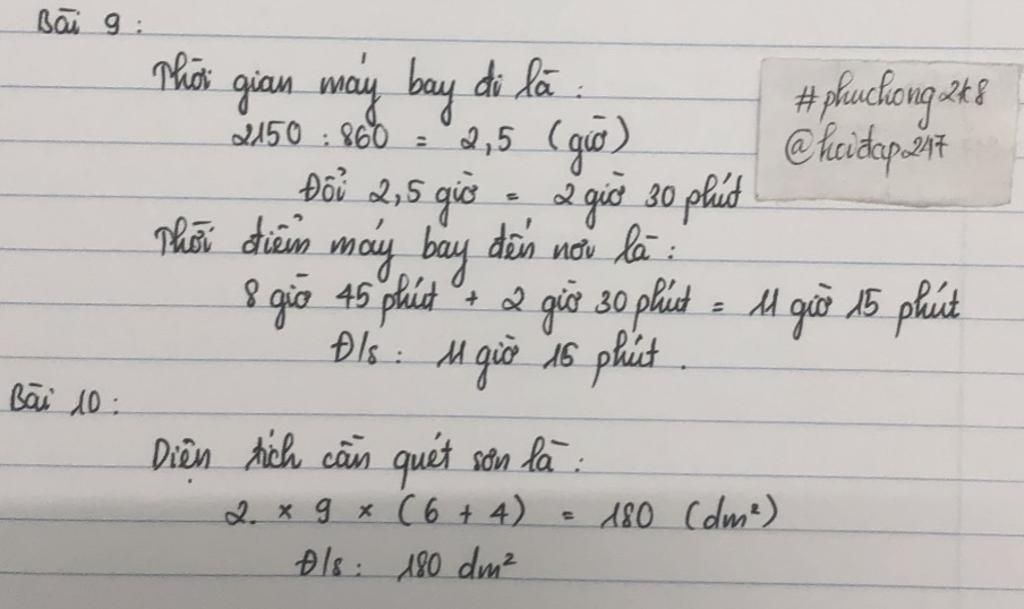 Bài 9 :
Thời gian máy bay đi là :
2150 : 860 = 2,5 (giờ)
Đổi 2,5 giờ = 2 giờ 30 phút
Thời điểm máy bay đến nơi là :
8 giờ 45 phút + 2 giờ 30 phút = 11 giờ 15 phút
Đ/s : 11 giờ 15 phút .
#phuchong2k8
@hoidap247
Bài 10 :
Diện tích cần quét sơn là :
2. × 9 × (6 + 4) = 180 (dm²)
Đ/s : 180 dm²